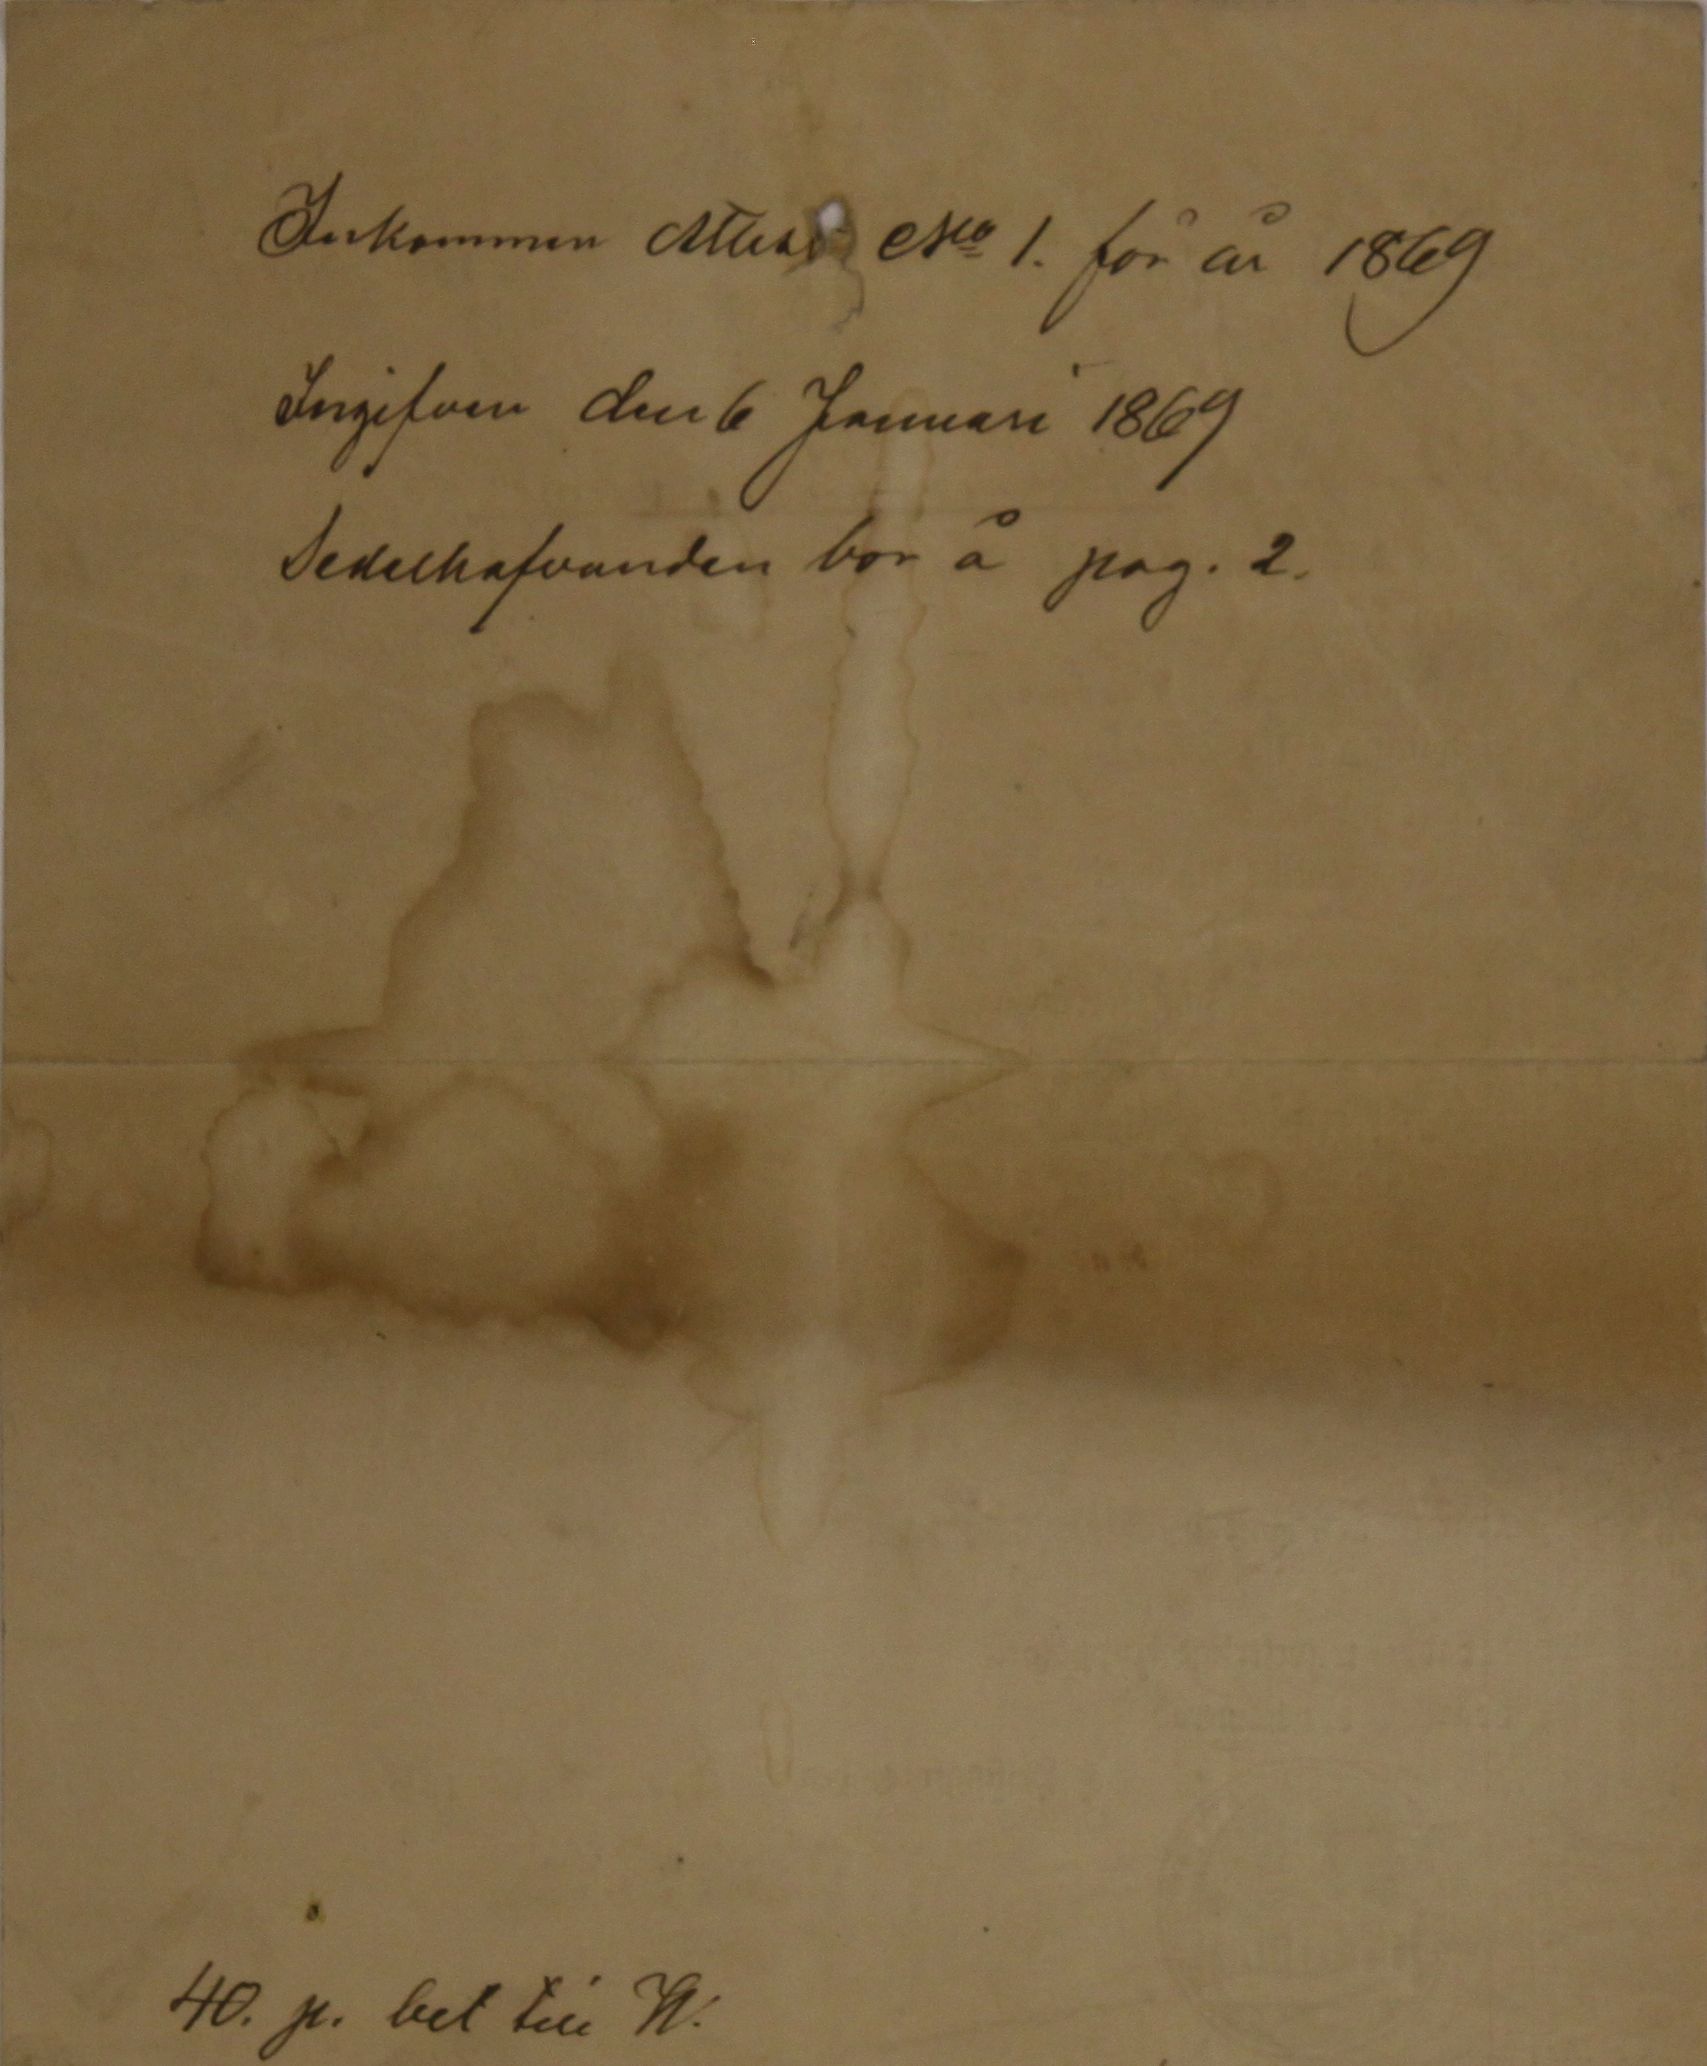 Inkommen Attest No 1. för år 1869
Ingifven den 6 Januari 1869
Sedelhafvanden bor å pag. 2.
40. p. bet till W.